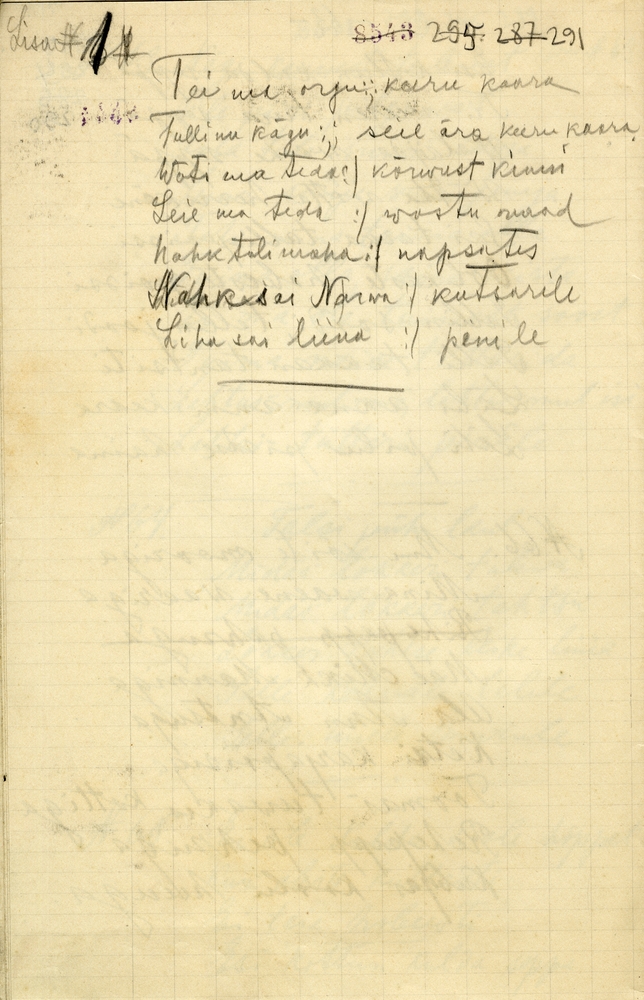 Lisa # 1
8543 295. 287 291
Tei ma orgu :,: keeru kaara
Tulli nu kägu :,: seie ära keeru kaara
Woti ma teda :/ kõrwust kinni
Leie ma teda :/ wastu maad
Nahk tuli maha :/ napsates
Nahk sai Narwa :/ kutsarile
Liha sai liina :/ penile